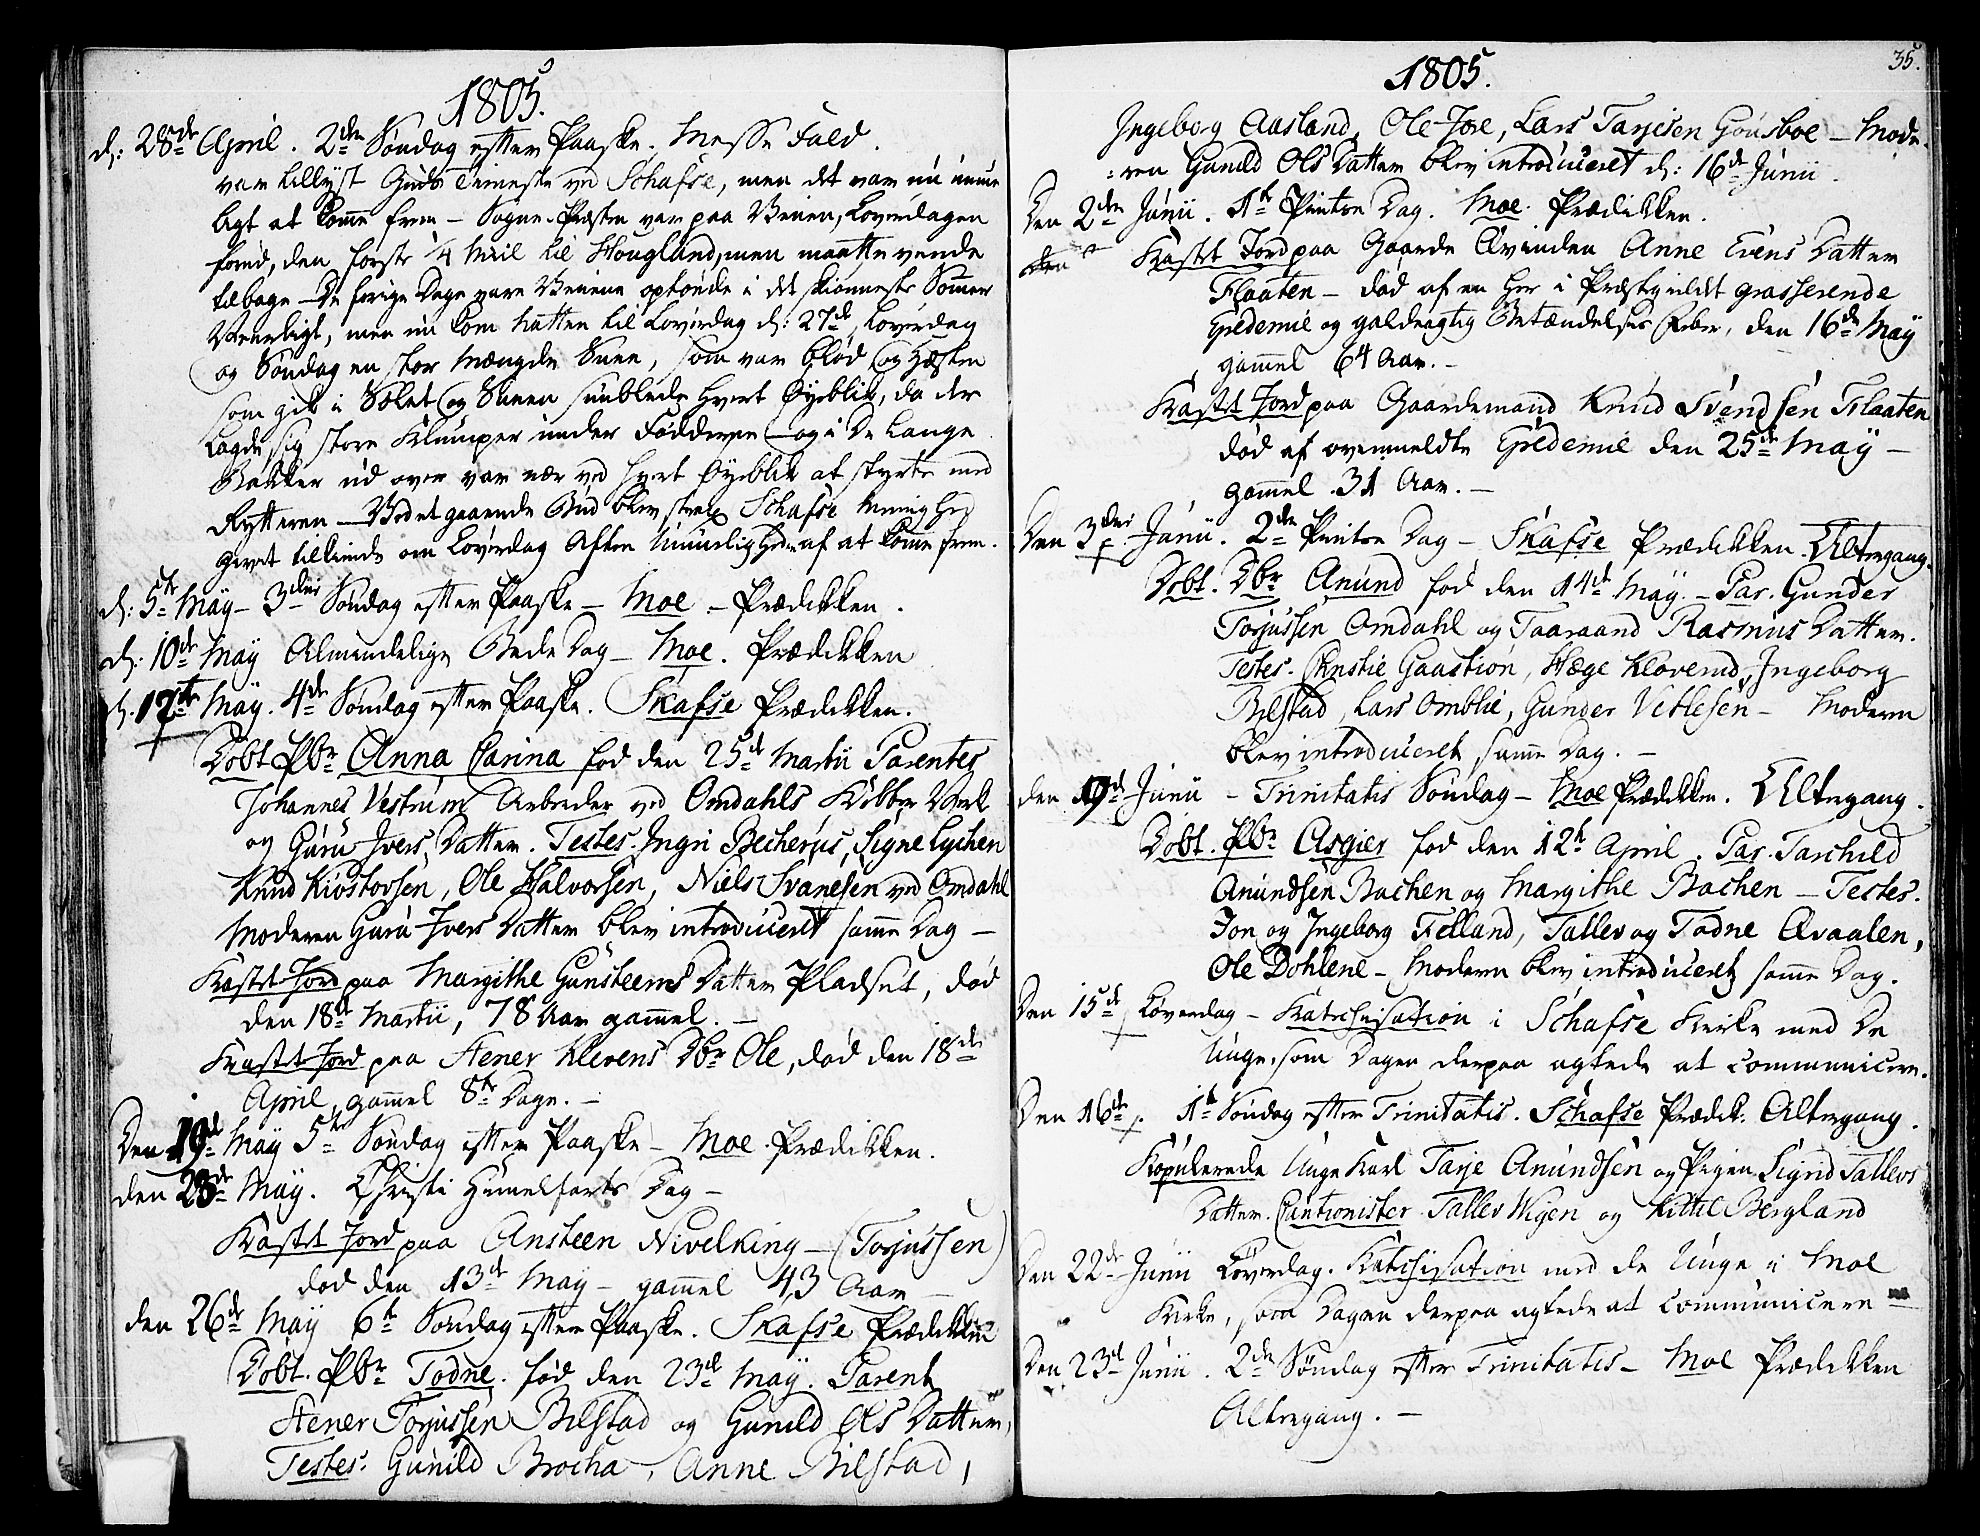 1805.
d: 28de April. 2den Søndag efter Paaske. Messe Fald.
var tillyst Guds Tieneste ved Schafse, men det var nu umue
ligt at komme frem - Sogne-Præsten var paa Veien, Loverdagen
forud, den første 1/4 Miil til Hougland, men maatte vende
tilbage - De forige Dage vare Veiene optøede i det skiønneste Sommer
Veerligt, men nu kom Natten til Loverdag d: 27de, Loverdag
og Søndag en stor Mængde Snee, som var blød og Hesten
som gik i Sølet og Sneen snublede hvert Øyeblik, da der
lagde sig store Klumper under Fødderne - og i De lange
Bakker ud over var nær ved hvert Øyeblik at styrte med
Rytteren - Ved et gaaende Bud blev strax Schafse Menighed
givet tilkiende om Loverdag Aften Umueligheden af at komme frem.
d: 5te May - 3die Søndag efter Paaske - Moe - Prædikken.
d: 10de May Almindelige Bede Dag - Moe. Prædikken
d. 12te May. 4de Søndag efter Paaske. Skafse Prædikken.
Døbt Pbr Anna Carina fød den 25de Martii Parentes
Johannes Vestrum Arbeider ved Omdahls Kobber Verk
og Guru Ivers Datter. Testes. Ingri Becherus, Signe Lychen
Knud Kivstovsen, Ole Halvorsen, Niels Svanesen ved Omdahl
Moderen Guru Ivers Datter blev introduceret samme Dag -
Kastet Jord paa Margithe Gunsteens Datter Pladset, død
den 18de Martii, 78 Aar gammel. -
Kastet Jord paa Stener Klevens Dbr Ole, død den 18de
April, gammel 8te Dage. -
Den 19de May 5te Søndag efter Paaske - Moe. Prædikken.
den 23de May. Christi Himelfarts Dag -
Kastet Jord paa Ansteen Nivelking - (Torjussen)
død den 13de May - gammel 43 Aar -
den 26de May 6te Søndag efter Paaske. Skafse Prædikken
Døbt. Pbr Todne. fød den 23de May. Parent
Stener Torjussen Bilstad og Gunild Ols Datter,
Testes. Gunild Brocha, Anne Bilstad,
35.
1805.
Ingeborg Aasland, Ole Joe, Lars Tarjesen Gousboe - Mode
=ren Gunild Ols Datter blev introduceret d: 16de Junii.
Den 2den Junii. 1te Pintse Dag. Moe. Prædikken.
Kastet Jord paa Gaarde Qvinden Anne Evens Datter
Flaaten - død af en her i Præstegieldet grasserende
Epedemie og galdeagtig Betændelses Feber, den 16de May
gammel 64 Aar. -
Kastet Jord paa Gaardemand Knud Svendsen Flaaten
død af ovenmeldte Epedemie den 25de May -
gammel 31 Aar. -
Den 3die Junii. 2den Pintse Dag - Skafse Prædikken. Altergang.
Døbt. Dbr Anund fød den 14de May. - Par. Gunder
Torjussen Omdahl og Taaraand Rasmus Datter.
Testes. Christie Gaastion, Hæge Kloverud, Ingeborg
Bilstad, Lars Omblie, Gunder Vetlesen - Moderen
blev introduceret samme Dag. -
den 9de Junii - Trinitatis Søndag - Moe Prædikken. Altergang.
Døbt. Pbr Asgier fød den 12te April. Par. Tarchild
Anundsen Bachen og Margithe Bachen - Testes.
Jon og Ingeborg Felland, Tallev og Todne Qvaalen,
Ole Dohlene - Moderen blev introduceret samme Dag.
Den 15de Løverdag - Katechisation i Schafse Kirke med De
Unge, som Dagen derpaa agtede at communicere.
Den 16de 1te Søndag efter Trinitatis. Schafse Prædik: Altergang.
Kopulerede Unge Karl Tarje Anundsen og Pigen Signd Tallevs
Datter. Cautionister Tallev Wigen og Kittil Bergland
Den 22de Junii Løverdag. Katechisation med de Unge i Moe
Kirke, som Dagen derpaa agtede at communicere
Den 23de Junii. 2den Søndag efter Trinitatis - Moe Prædikken
Altergang. -